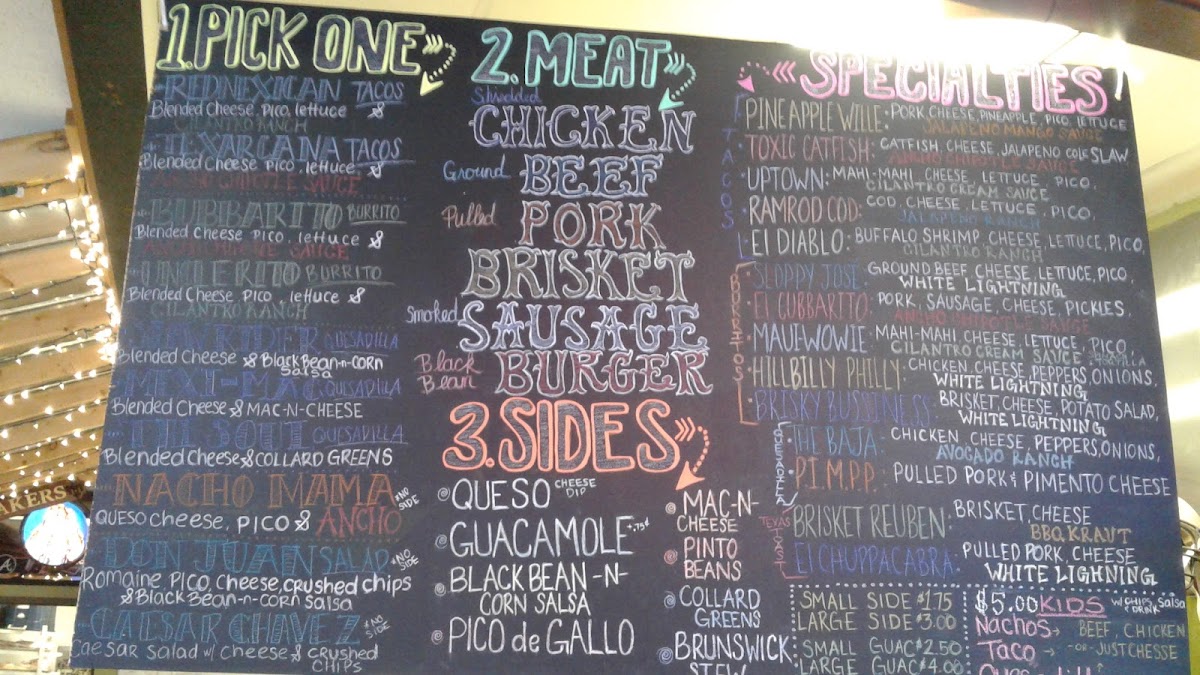 1. PICK ONE
REDNEXICAN TACOS
Blended Cheese, Pico, lettuce &
CILANTRO RANCH
TEXARCANA TACOS
Blended Cheese, Pico, lettuce &
ANCHO CHIPOTLE SAUCE
BUBBARITO BURRITO
Blended Cheese, Pico, lettuce &
UNCLE RITO BURRITO
Blended Cheese, Pico, lettuce &
CILANTRO RANCH
QUESADILLA
Blended Cheese & Black Bean-n-Corn
Salsa
MEXI-MAC QUESADILLA
Blended Cheese & MAC-N-CHEESE
QUESADILLA
Blended Cheese & COLLARD GREENS
NACHO MAMA *NO SIDE
QUESO cheese, PICO & ANCHO
DON JUAN SALAD *NO SIDE
Romaine, PICO, cheese, crushed chips
& Black Bean-n-corn salsa
CAESAR CHAVEZ *NO SIDE
Caesar Salad w/ Cheese & crushed
CHIPS
2. MEAT
Shredded CHICKEN
Ground BEEF
Pulled PORK
BRISKET
Smoked SAUSAGE
Black Bean BURGER
3. SIDES
QUESO CHEESE DIP
GUACAMOLE +.75¢
BLACK BEAN -N-
CORN SALSA
PICO de GALLO
MAC-N-
CHEESE
PINTO
BEANS
COLLARD
GREENS
BRUNSWICK
STEW
SPECIALTIES
TACOS
PINEAPPLE WILLE: PORK, CHEESE, PINEAPPLE, PICO, LETTUCE
JALAPENO MANGO SAUCE
TOXIC CATFISH: CATFISH, CHEESE, JALAPENO COLE SLAW
ANCHO CHIPOTLE SAUCE
UPTOWN: MAHI-MAHI, CHEESE, LETTUCE, PICO,
CILANTRO CREAM SAUCE
RAMROD COD: COD, CHEESE, LETTUCE, PICO,
JALAPENO RANCH
El DIABLO: BUFFALO SHRIMP, CHEESE, LETTUCE, PICO,
CILANTRO RANCH
BURRITOS
SLOPPY JOSE: GROUND BEEF, CHEESE, LETTUCE, PICO,
WHITE LIGHTNING
El CUBBARITO: PORK, SAUSAGE, CHEESE, PICKLES,
ANCHO CHIPOTLE SAUCE
MAUI-WOWIE: MAHI-MAHI, CHEESE, LETTUCE, PICO,
CILANTRO CREAM SAUCE
HILLBILLY PHILLY: CHICKEN, CHEESE, PEPPERS, ONIONS,
WHITE LIGHTNING
BRISKY BUSINESS: BRISKET, CHEESE, POTATO SALAD,
WHITE LIGHTNING
THE BAJA: CHICKEN, CHEESE, PEPPERS, ONIONS,
AVOCADO RANCH
P.I.M.P.P. PULLED PORK & PIMENTO CHEESE
TEXAS TOAST
BRISKET REUBEN: BRISKET, CHEESE
BBQ, KRAUT
El CHUPPACABRA: PULLED PORK, CHEESE
WHITE LIGHNING
SMALL SIDE $1.75
LARGE SIDE $3.00
SMALL GUAC $2.50
LARGE GUAC $4.00
$5.00 KIDS w/ CHIPS, Salsa & DRINK
Nachos → BEEF, CHICKEN
Taco → -OR- JUST CHESSE